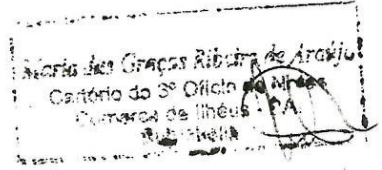 Maria das Graças Ribeiro de Araújo
Cartório do 3º Ofício de Notas
Comarca de Ilhéus - BA